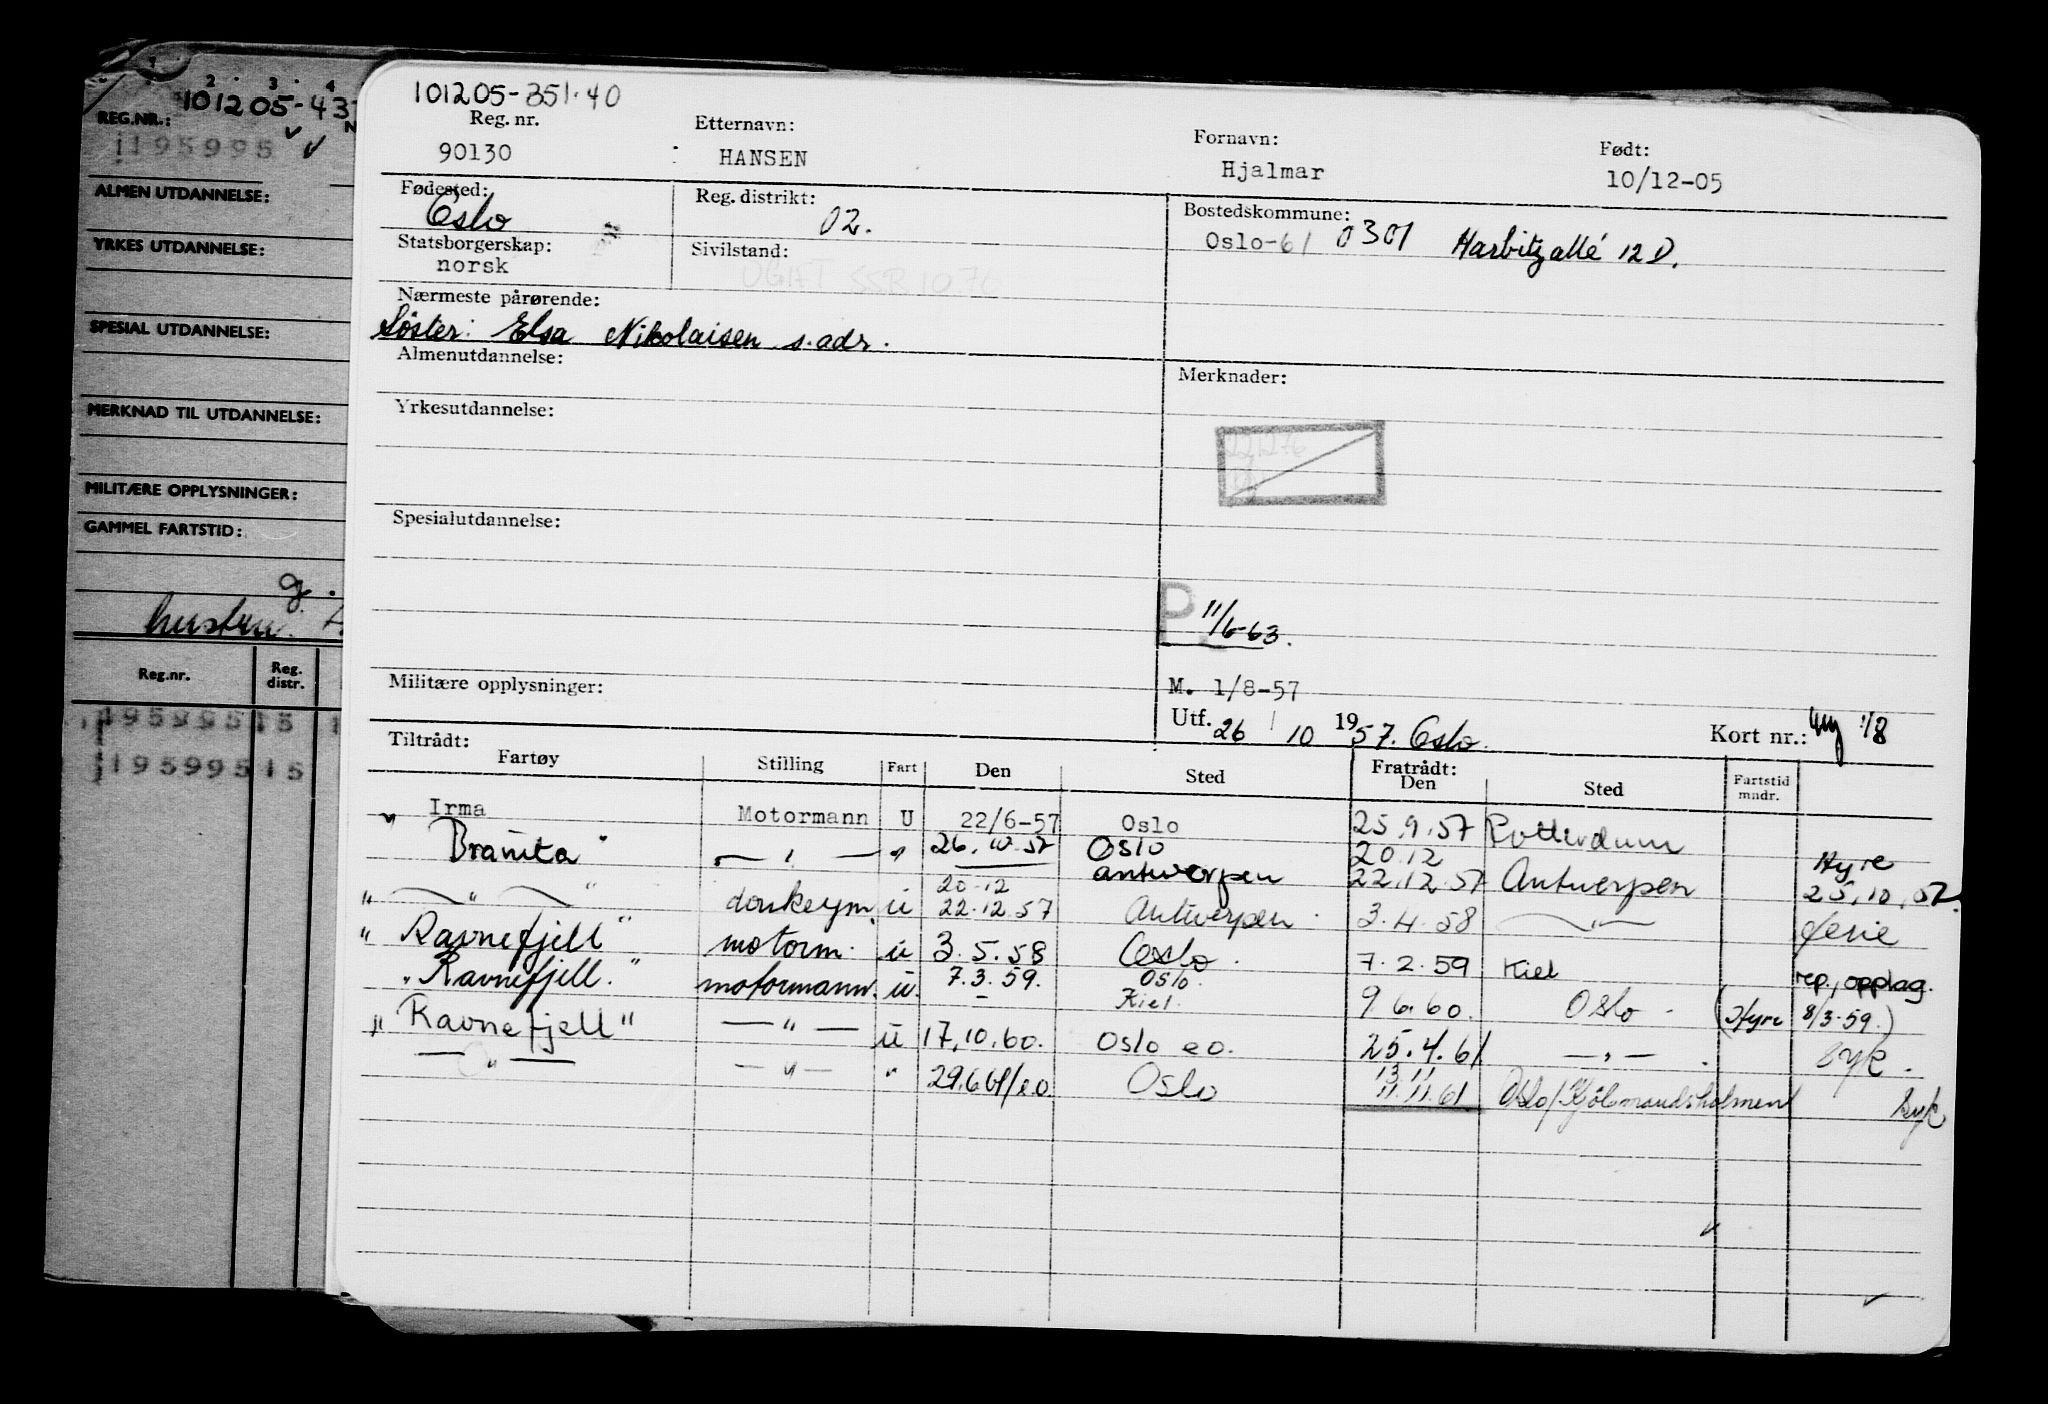 101205-43
REG.NR.:
195995
ALMEN UTDANNELSE:
YRKES UTDANNELSE:
SPESIAL UTDANNELSE:
MERKNAD TIL UTDANNELSE:
MILITÆRE OPPLYSNINGER:
GAMMEL FARTSTID:
g.
hustru:
Reg.nr. Reg. distr.
195995 15 1
195995 15
101205-351.40
Reg. nr. Etternavn: Fornavn: Født:
90130 : HANSEN Hjalmar 10/12-05
Fødested: Reg. distrikt: Bostedskommune:
Oslo 02. Oslo-61 0301 Harbitzallé 12 D.
Statsborgerskap: Sivilstand:
norsk UGIFT SSB 1076
Nærmeste pårørende:
Søster: Elsa Nikolaisen s. adr.
Almenutdannelse: Merknader:
Yrkesutdannelse:
221276
Spesialutdannelse:
P. 11/6-63.
Militære opplysninger: M. 1/8-57
Utf. 26 / 10 1957. Oslo. Kort nr.: 1/8
Tiltrådt: Fratrådt:
Fartøy Stilling Fart Den Sted Den Sted Fartstid mndr.
Irma Motormann U 22/6-57 Oslo 25.9.57 Rotterdam
" Branita " — " — " 26.10.57 Oslo antwerpen 20.12 22.12.57 Antwerpen Hyre 25.10.57.
" — " — " donkeym. u 20-12 22.12.57 Antwerpen. 3.4.58 — " — ferie
" Ravnefjell " motorm. u 3.5.58 Oslo. 7.2.59 Kiel rep., opplag.
" Ravnefjell. " motormann. u. 7.3.59. Oslo. Kiel. 9.6.60. Oslo. (Hyre 8/3-59.)
" Ravnefjell " — " — u 17.10.60. Oslo eo. 25.4.61 — " — . syk.
— " — — " — " 29.6.61/eo. Oslo 13.11 11.11.61 Oslo/Kjölmandsholmen syk